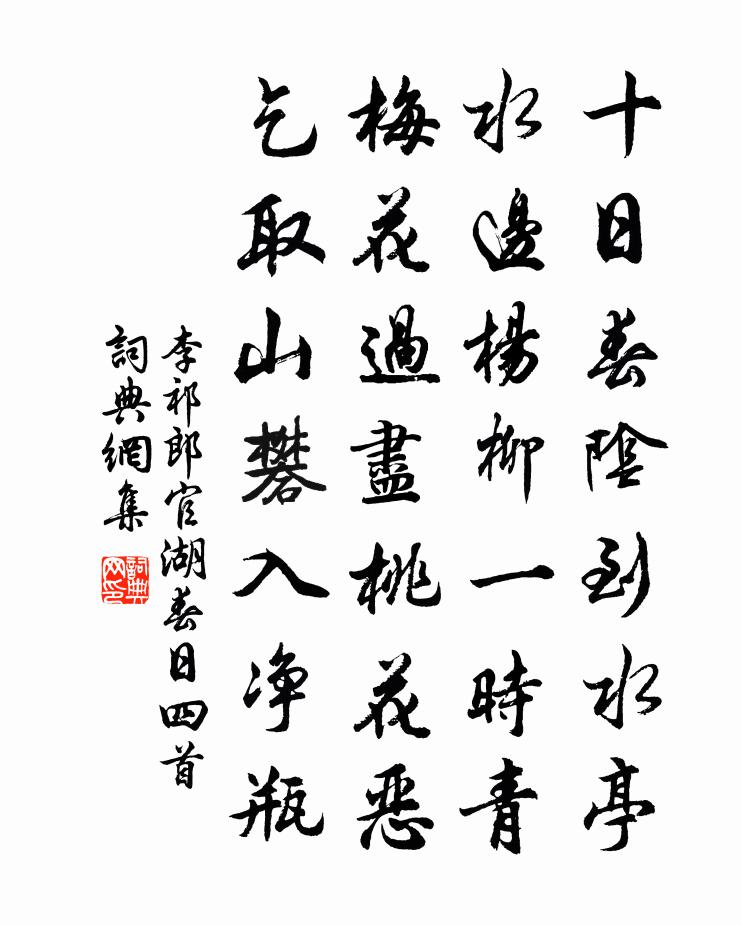 十日春陰到水亭
水邊楊柳一時青
梅花過盡桃花惡
乞取山礬入淨瓶
李祁郎官湖春日四首
詞典網集
詞典網印